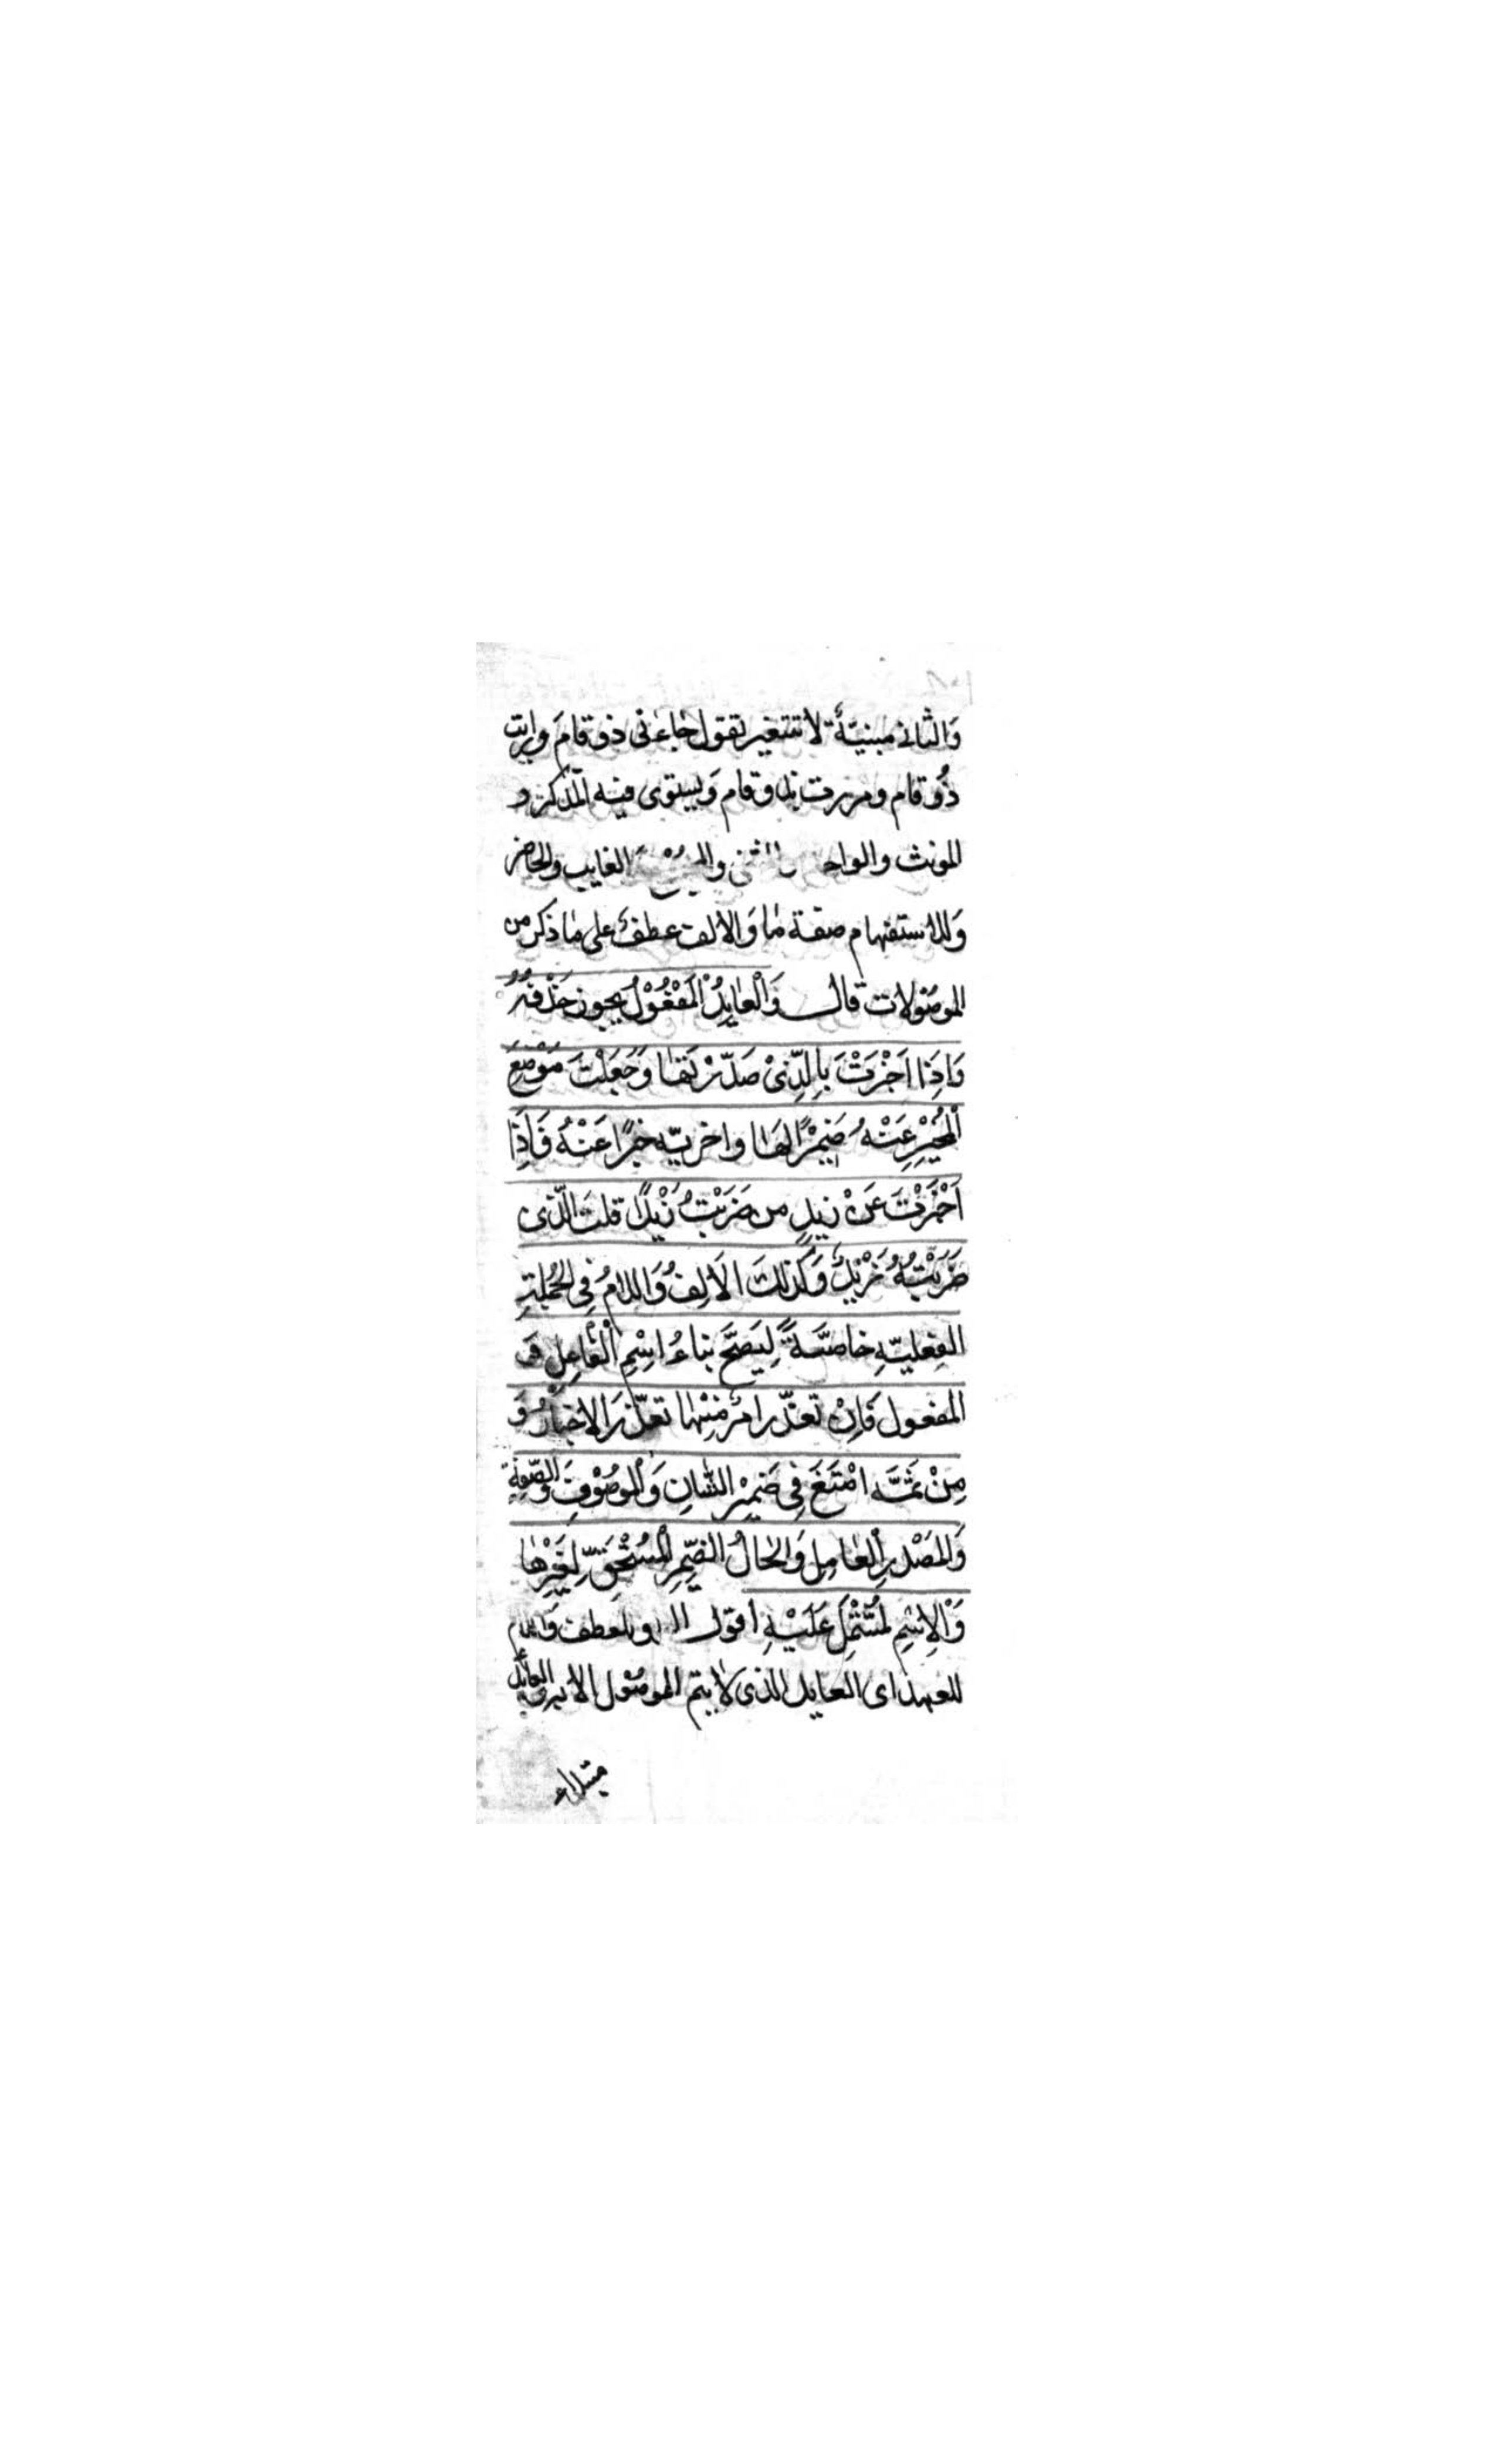 وَالثاني مبنيّةٌ لا تتغير تقول جاءنى ذو قامَ ورايت
ذُو قام ومررت بذو قام وَيستوى فيه المذكر و
المونث والواحد والمثنى والجمع الغايب والحاضر
وَللاستفهام صفة ما وَالالف عطفٌ على ما ذكر من
الموصُولات قال وَالْعَايِدُ الْمَفْعُوْلُ يجوز حَذْفُهُ
وَاِذَا اَخْبَرْتَ بِالَّذِىْ صَدَّرْتَهَا وَجَعَلْتَ مَوْضِعَ
الْمُخْبَرِ عَنْهُ ضَمِيْرًا لهَا واخرتّه خبرًا عَنْهُ فَاِذَا
اَخْبَرْتَ عَنْ زيدٍ من ضَرَبْتُ زَيْدًا قلتَ الَّذى
ضَرَبْتُهُ زَيْدٌ وَكَذٰلكَ الاَلِفُ وَاللامُ فِى الجُمْلَةِ
الفِعْليّهِ خاصَّةً لِيَصِحَّ بناءُ اسْمِ الْفَاعِلِ وَ
المفعول فَاِنْ تعذّر امرٌ مِنْهَا تعذّرَ الاِخبارُ وَ
مِنْ ثَمَّه امْتَنَعَ فِى ضَمِيْرِ الشّانِ وَالْموصُوْفِ وَالصِّفَةِ
وَالمَصْدرِ الْعَامِلِ وَالحَالُ الضّمِيْرِ الْمُسْتَحَقّ لِغَيْرِهَا
وَالْاِسْمِ لمُشْتَمِلِ عَلَيْهِ اقول الواو للعطف وَاللام
للعهد اى العايد الذى لا يتم الموصُول الا به العايد
مبتداء